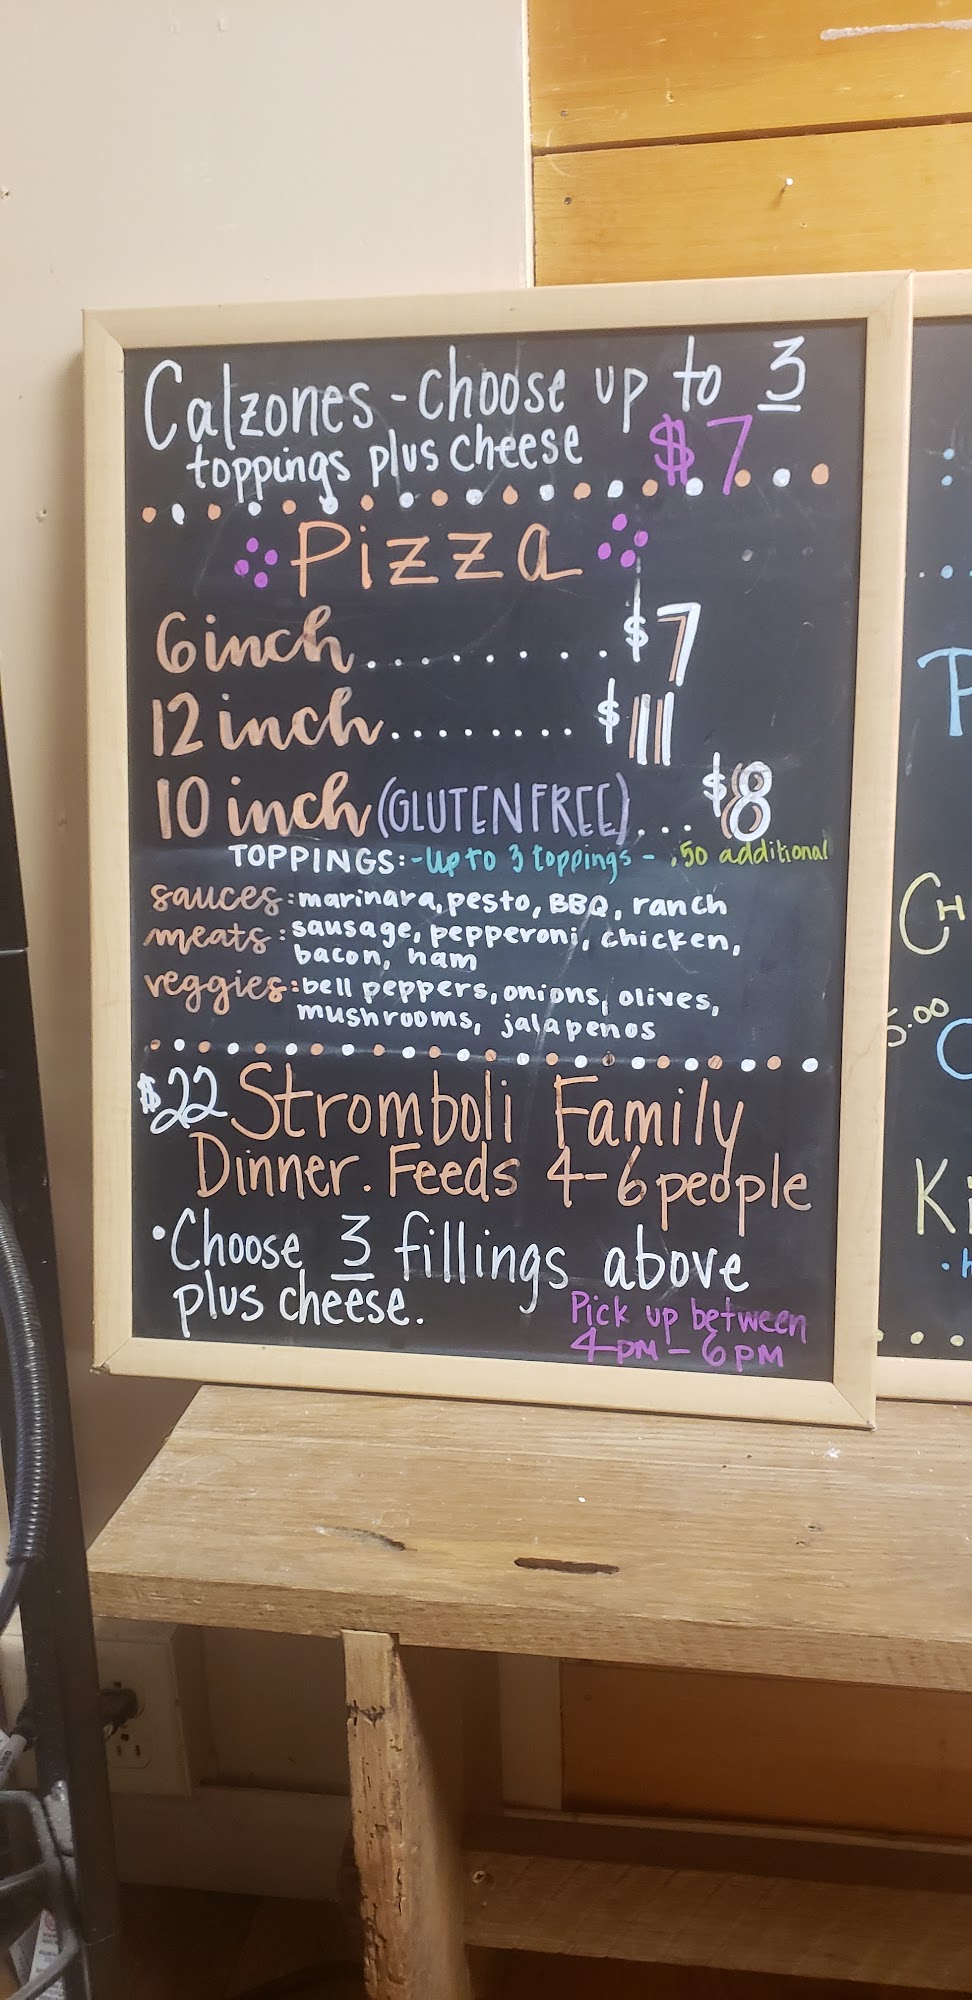 Calzones - choose up to 3
toppings plus cheese $7
Pizza
6 inch.........$7
12 inch........$11
10 inch (GLUTEN FREE)...$8
TOPPINGS: -up to 3 toppings - .50 additional
sauces: marinara, pesto, BBQ, ranch
meats: sausage, pepperoni, chicken,
bacon, ham
veggies: bell peppers, onions, olives,
mushrooms, jalapenos
$22 Stromboli Family
Dinner. Feeds 4-6 people
• Choose 3 fillings above
plus cheese.
Pick up between
4PM - 6PM
5.00